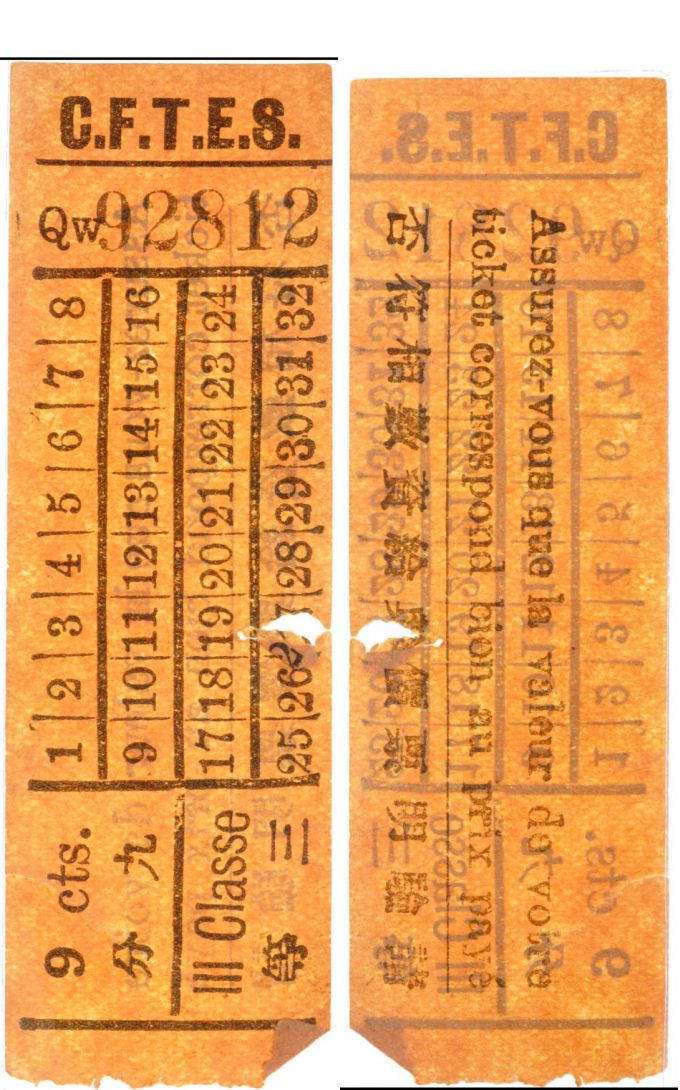 C.F.T.E.S.
Qw92812
1|2|3|4|5|6|7|8
9|10|11|12|13|14|15|16
17|18|19|20|21|22|23|24
25|26|27|28|29|30|31|32
9 cts.
九分
III Classe
三等
Assurez-vous que la valeur de votre
ticket correspond bien au prix payé
請驗明票價與給資數相符否